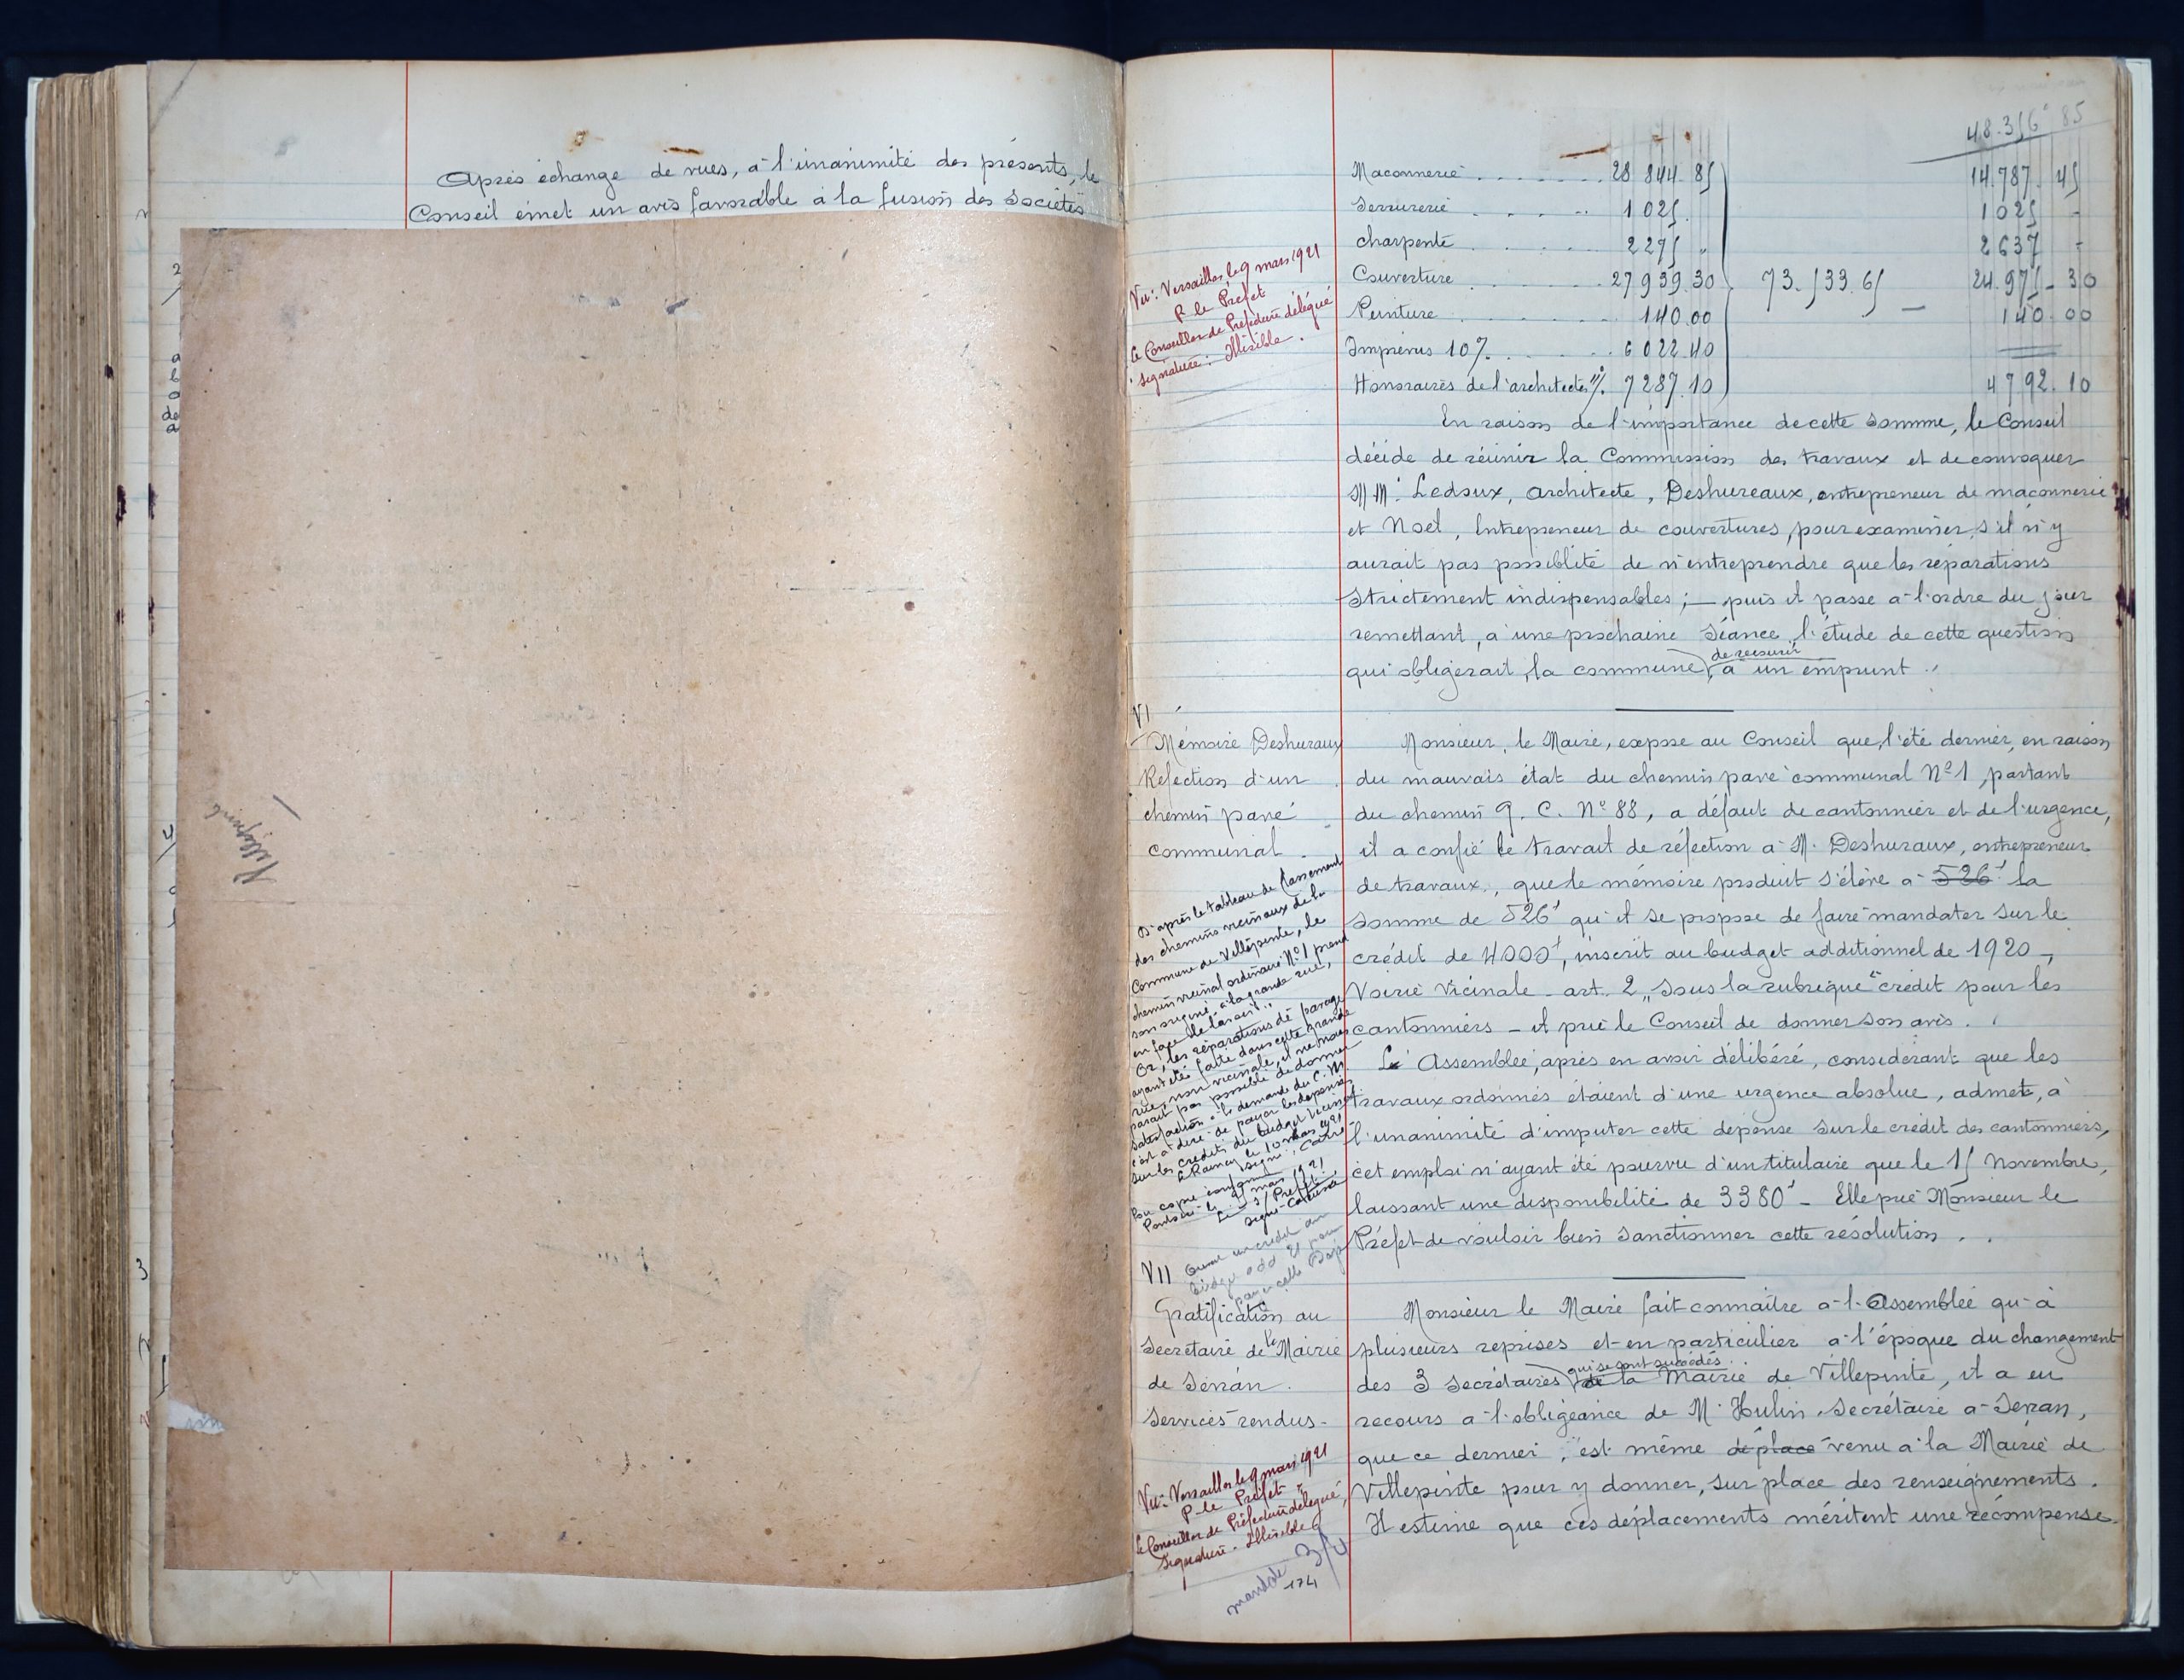 Après échange de vues, à l'unanimité des présents, le
Conseil émet un avis favorable à la fusion des Sociétés
Villepinte
48.356 85
Maçonnerie 28 844 85 14.787 45
Serrurerie 1 025 1025 -
charpente 2275 " 2637 -
Couverture 27 939.30 73.533.65 24.975 - 30
Peinture 140.00 140.00
Imprévus 10% 6 022.40
Honoraires de l'architecte 7 287.10 4792.10
Vu: Versailles, le 9 mars 1921
P. le Préfet
Le Conseiller de Préfecture délégué
signature: Illisible.
En raison de l'importance de cette somme, le Conseil
décide de réunir la Commission des travaux et de convoquer
MM. Ledoux, architecte, Deshureaux, entrepreneur de maçonnerie
et Noël, Entrepreneur de couvertures, pour examiner s'il n'y
aurait pas possiblité de n'entreprendre que les réparations
strictement indispensables ; — puis il passe à l'ordre du jour
remettant, à une prochaine séance, l'étude de cette question
qui obligerait la commune de recourir à un emprunt.
VI
Mémoire Deshuraux
Réfection d'un
chemin pavé
communal.
Monsieur le Maire, expose au Conseil que, l'été dernier, en raison
du mauvais état du chemin pavé communal N° 1, partant
du chemin G. C. N° 88, a défaut de cantonnier et de l'urgence,
il a confié le travail de réfection à M. Deshuraux, entrepreneur
de travaux, que le mémoire produit s'élève à 526f la
somme de 526f qu'il se propose de faire mandater sur le
crédit de 4000f, inscrit au budget additionnel de 1920 -,
Voirie Vicinale - art. 2 „ sous la rubrique "crédit pour les
cantonniers - et prie le Conseil de donner son avis.
L'Assemblée, après en avoir délibéré, considérant que les
travaux ordonnés étaient d'une urgence absolue, admet, à
l'unanimité d'imputer cette dépense sur le crédit des cantonniers,
cet emploi n'ayant été pourvu d'un titulaire que le 15 Novembre,
laissant une disponibilité de 3380f - Elle prie Monsieur le
Préfet de vouloir bien sanctionner cette résolution.
D'après le tableau de classement
des chemins vicinaux de la
Commune de Villepinte, le
chemin vicinal ordinaire N° 1 prend
son origine "à la grande rue,
en face de
Or, les réparations de pavage
ayant été faites dans cette grande
rue, non vicinale, il ne nous
parait pas possible de donner
satisfaction à la demande du C. M
c'est à dire de payer les dépenses
sur les crédits du budget vicinal
Le Raincy le 10 mars 1921
signé:
Pour copie conforme
Pontoise le mars 1921
Le S/Préfet
signé:
VII
Gratification au
Secrétaire de la Mairie
de Sevran.
Services rendus -
Monsieur le Maire fait connaître à l'Assemblée qu'à
plusieurs reprises et en particulier à l'époque du changement
des 3 Secrétaires qui se sont succédés de la Mairie de Villepinte, il a eu
recours à l'obligeance de M. Hulin, Secrétaire à Sevran,
que ce dernier, est même déplacé venu à la Mairie de
Villepinte pour y donner, sur place des renseignements.
Il estime que ces déplacements méritent une récompense.
Vu: Versailles, le 9 mars 1921
P. le Préfet
Le Conseiller de Préfecture délégué,
Signature: Illisible
mandate
174